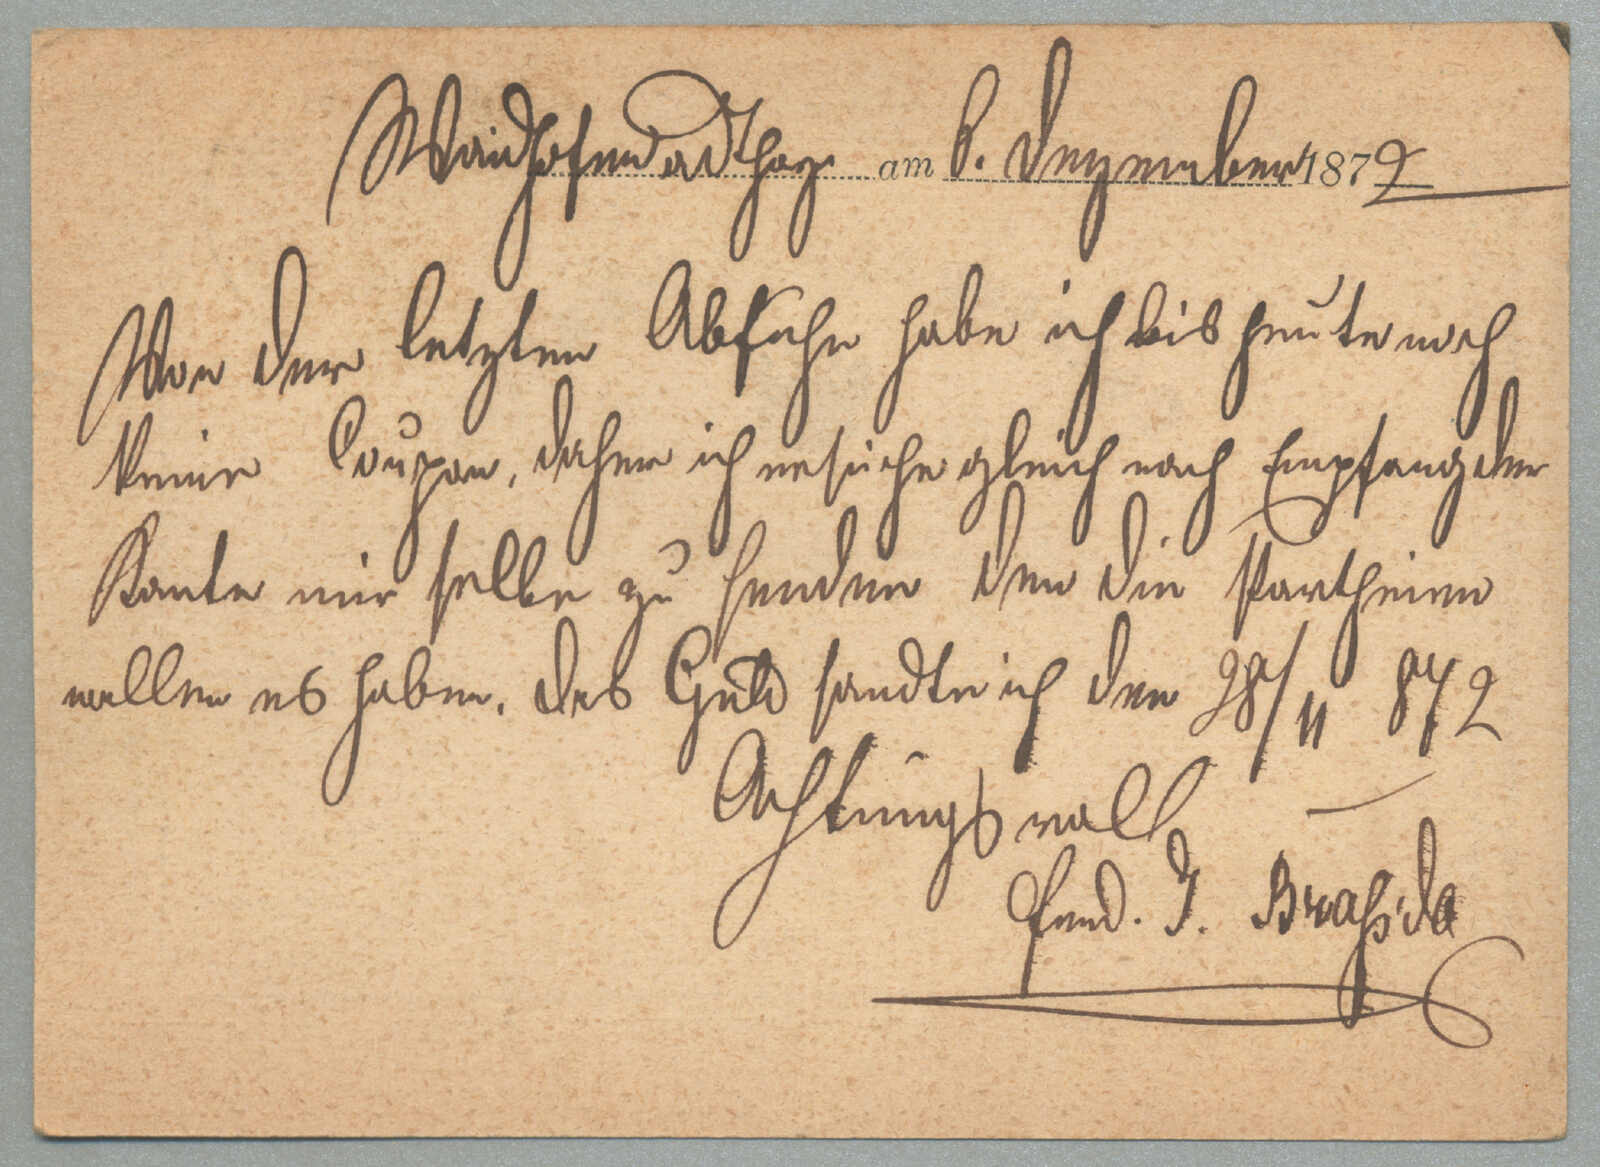 Waidhofen a d Thaya am 6. Dezember 1872
Von der letzten Abfuhr habe ich bis heute noch
keine Coupon, daher ich ersuche gleich nach Empfang der
Karte mir selbe zu senden den die Partheien
wollen es haben. das Geld sandte ich den 28/11 872
Achtungsvoll
Ferd. J.